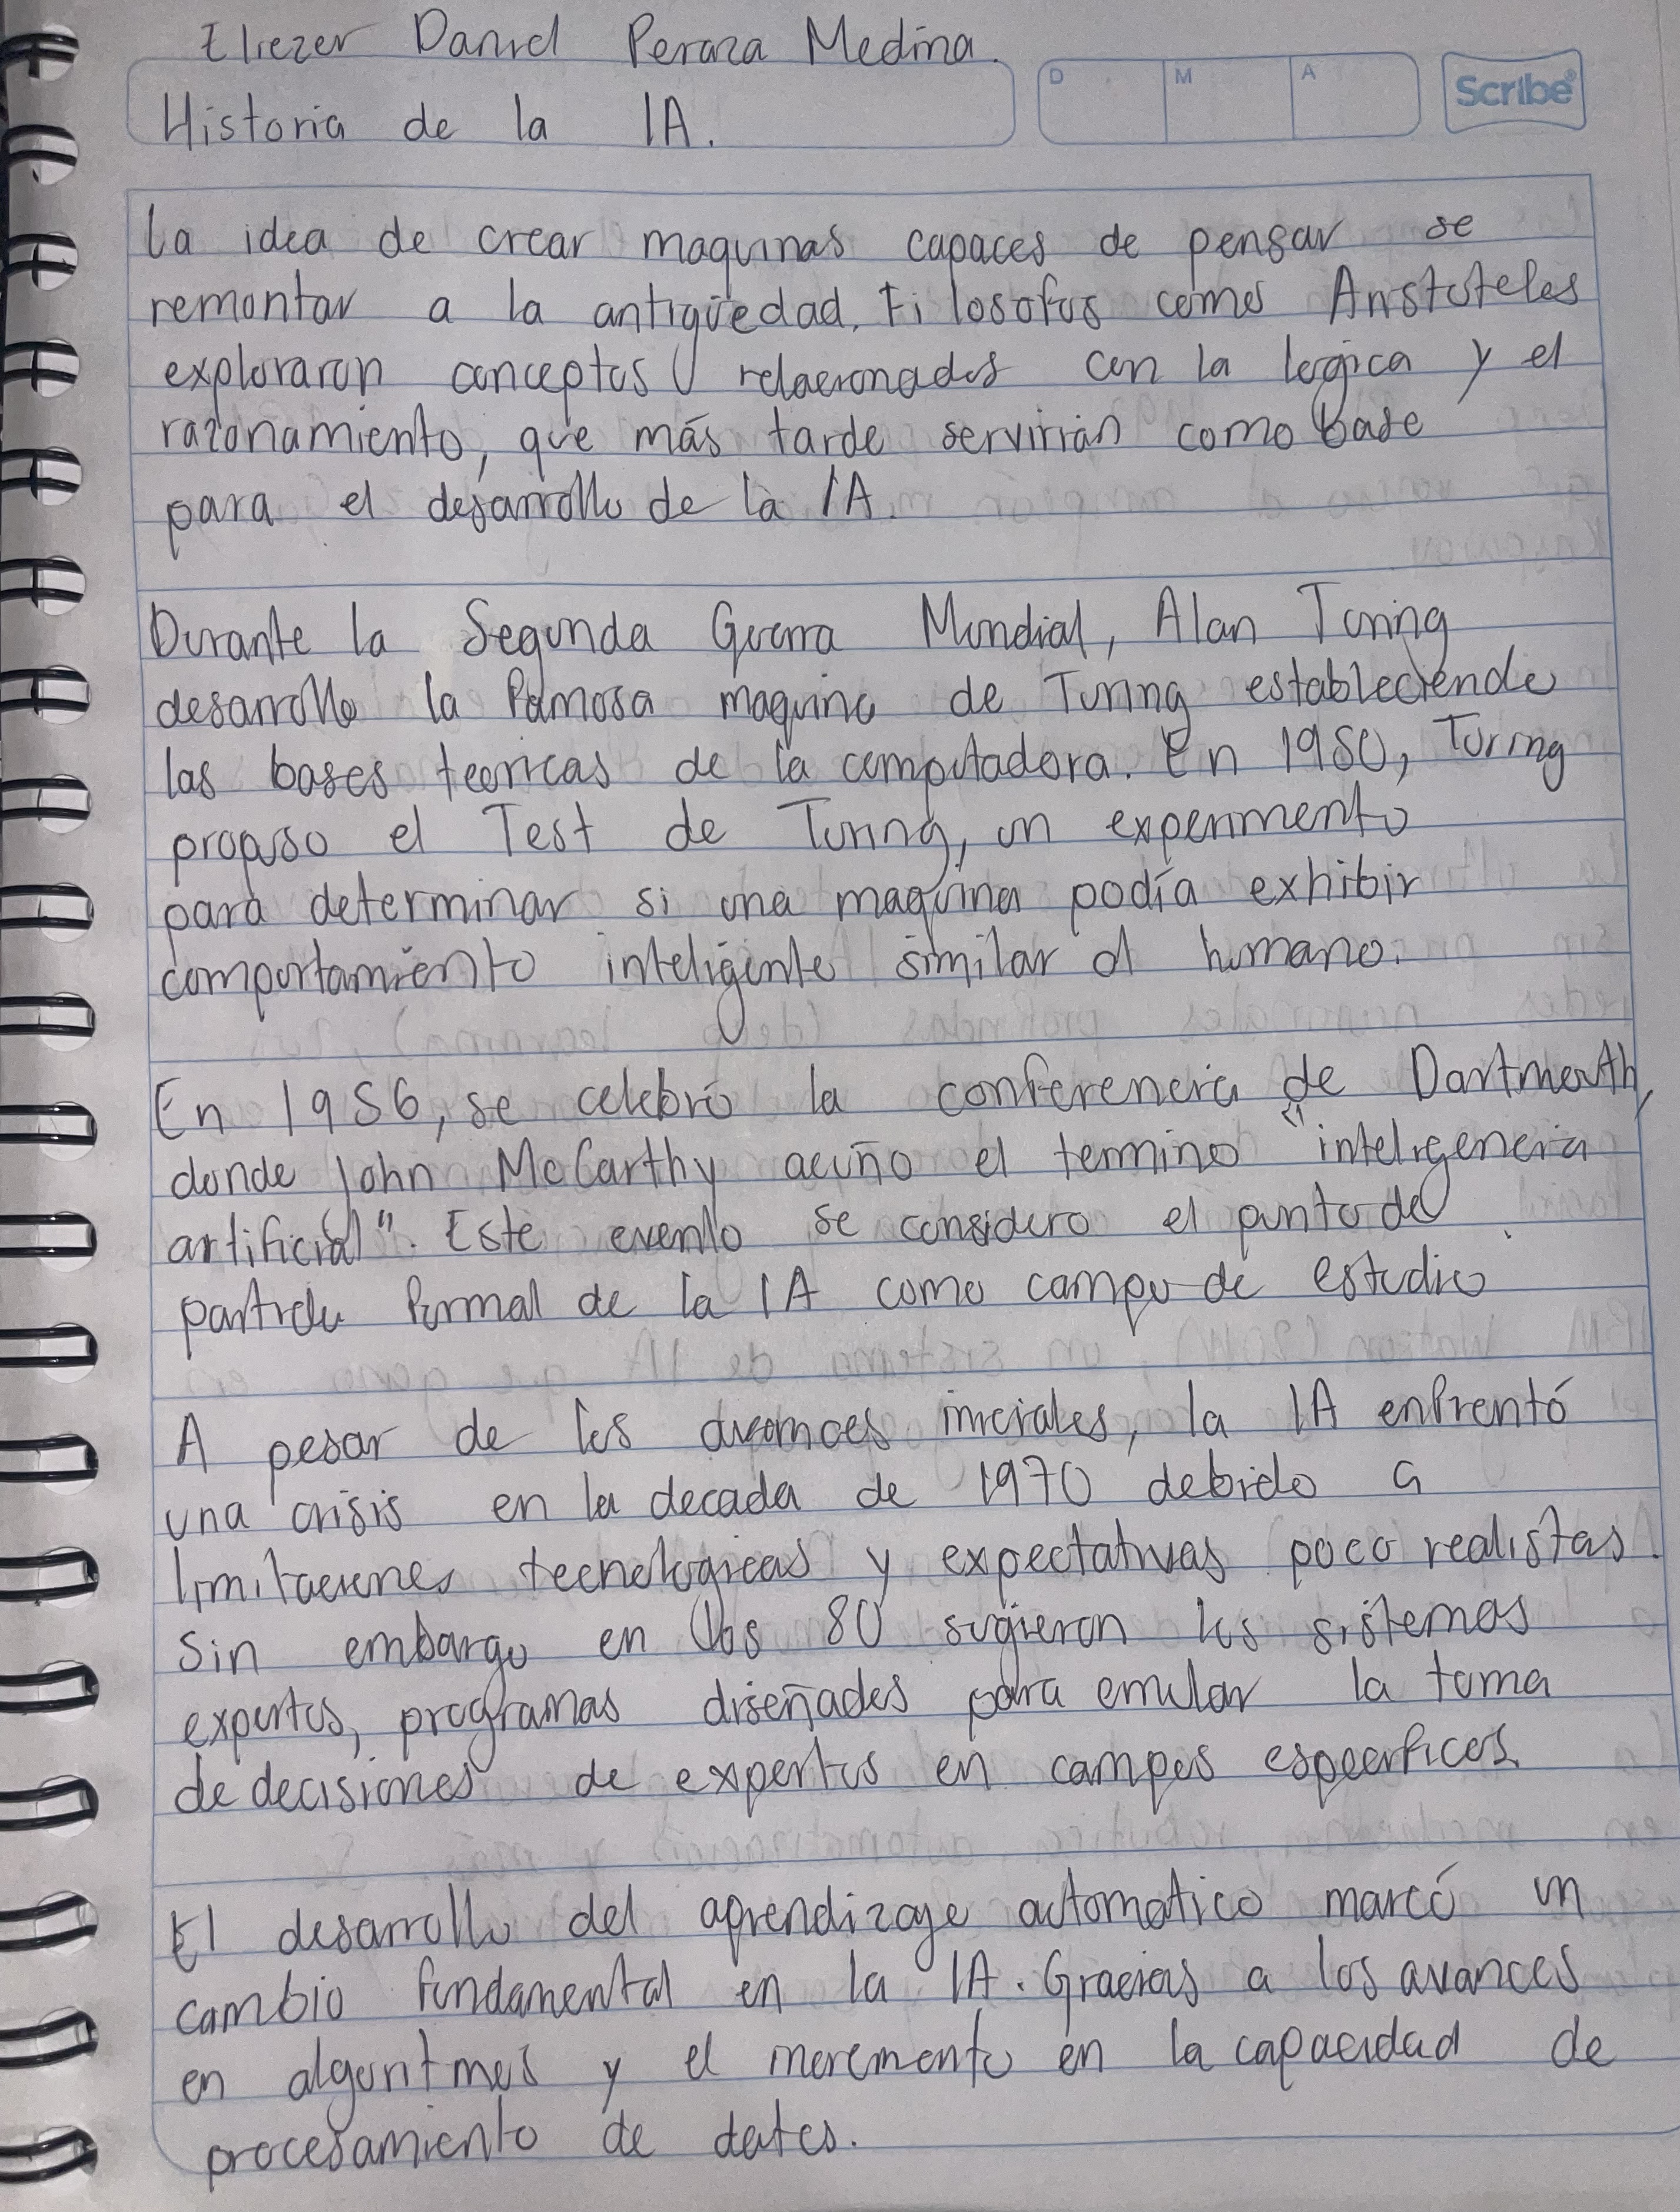 Eliezer Daniel Peraza Medina.
D M A
Scribe®
Historia de la IA.
la idea de crear maquinas capaces de pensar se
remontar a la antigüedad. Filosofos como Aristoteles
exploraron conceptos relacionados con la logica y el
razonamiento, que más tarde servirián como base
para el desarrollo de la IA.
Durante la Segunda Guerra Mundial, Alan Turing
desarrollo la famosa maquina de Turing estableciendo
las bases teoricas de la computadora. En 1950, Turing
propuso el Test de Turing, un experimento
para determinar si una maquina podía exhibir
comportamiento inteligente similar al humano.
En 1956, se celebró la conferencia de Dartmouth,
donde John McCarthy acuño el termino "inteligencia
artificial". Este evento se considero el punto de
partida formal de la IA como campo de estudio
A pesar de los avances iniciales, la IA enfrentó
una crisis en la decada de 1970 debido a
limitaciones tecnologicas y expectativas poco realistas.
Sin embargo en los 80 sugieron los sistemas
expertos, programas diseñados para emular la toma
de decisiones de expertos en campos especificos.
El desarrollo del aprendizaje automatico marcó un
cambio fundamental en la IA. Gracias a los avances
en algoritmos y el incremento en la capacidad de
procesamiento de datos.